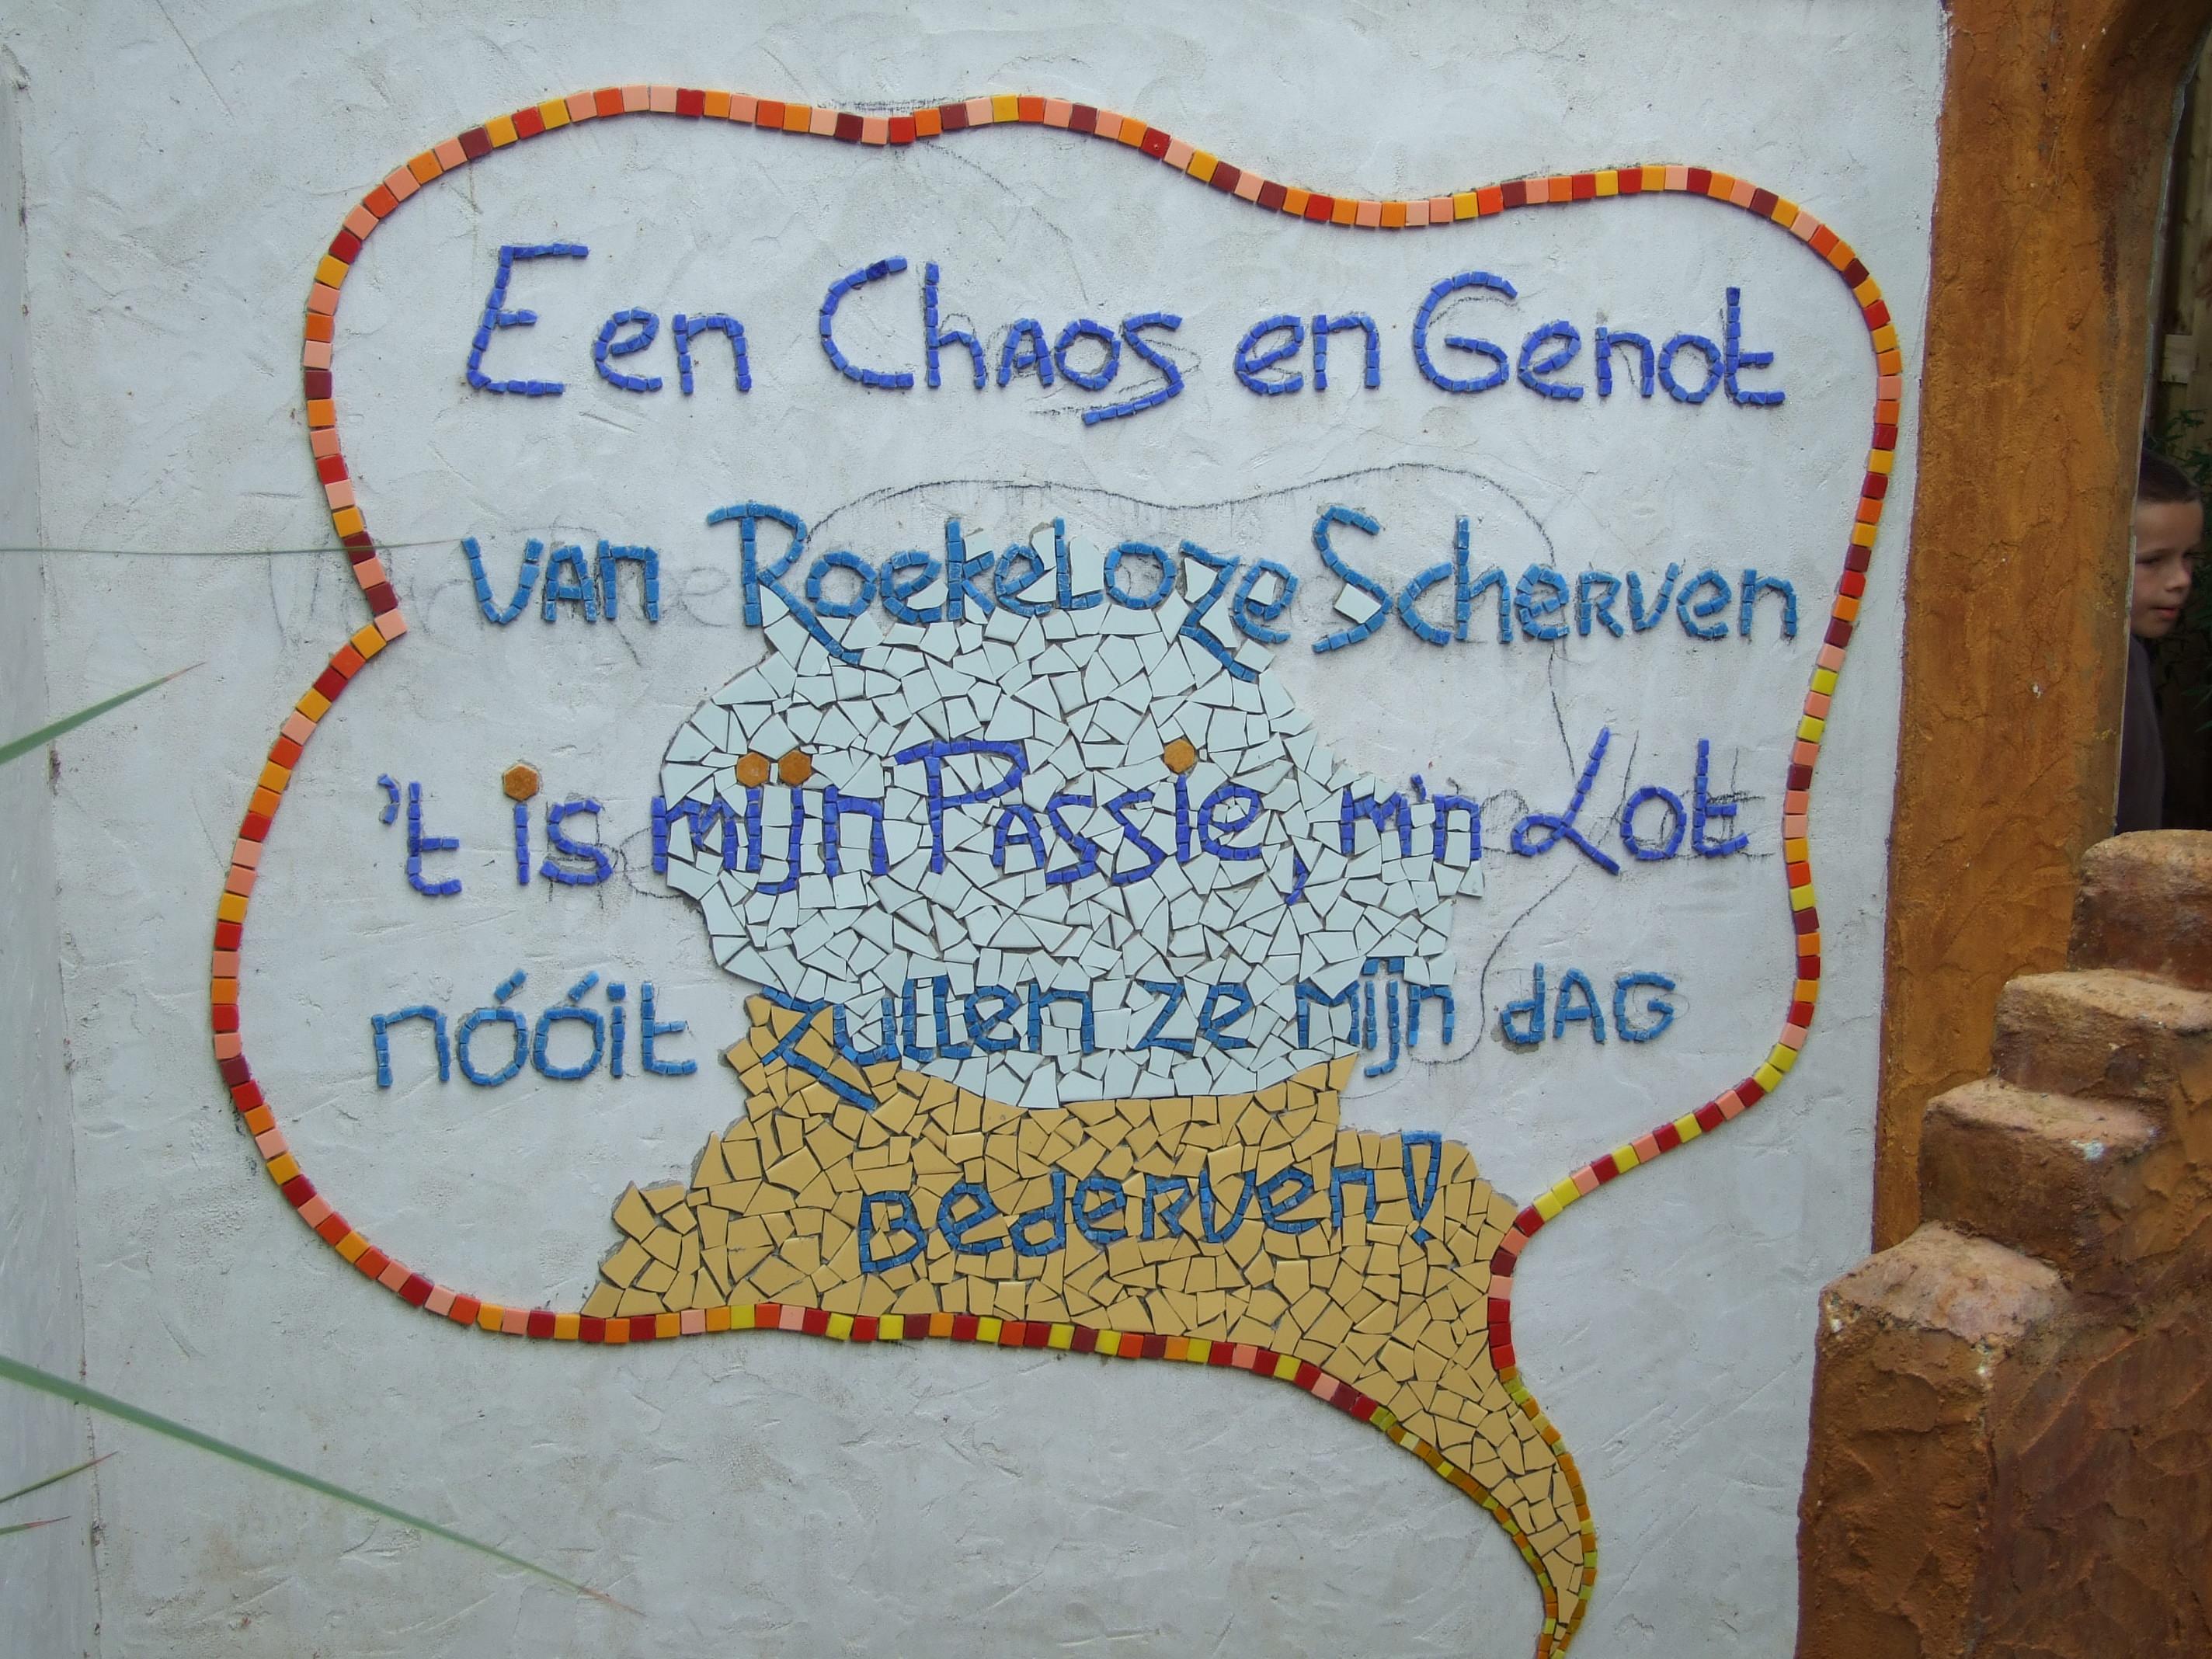 Een Chaos en Genot
van Roekeloze Scherven
't is mijn Passie, m'n Lot
nóóit zullen ze mijn dAG
Bederven!